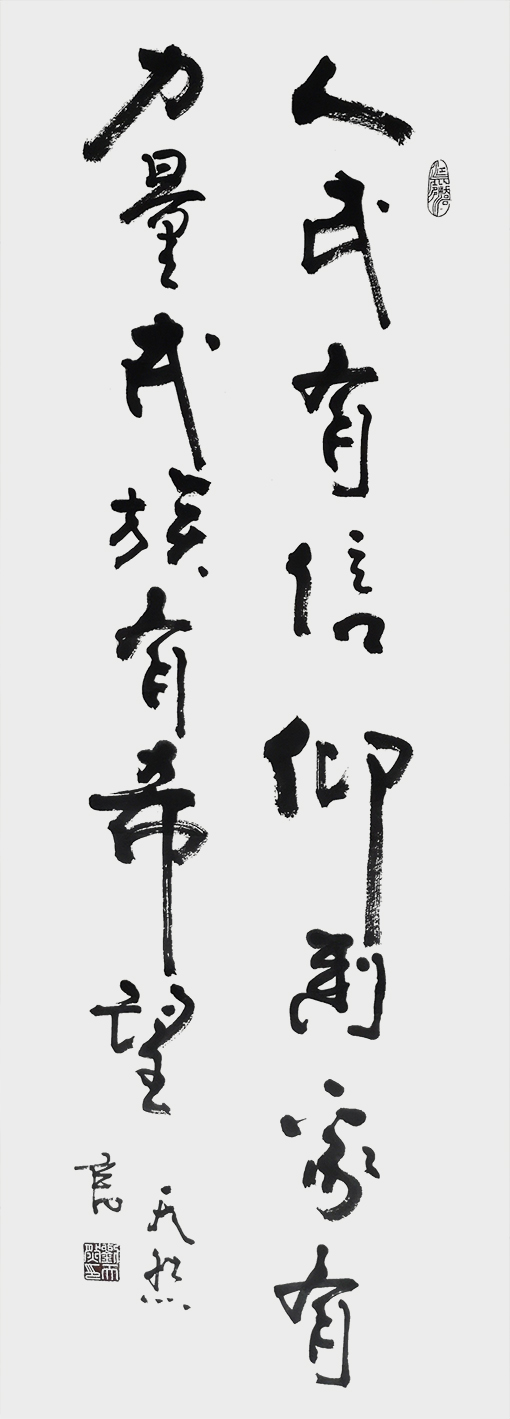 人民有信仰国家有
力量民族有希望
天然